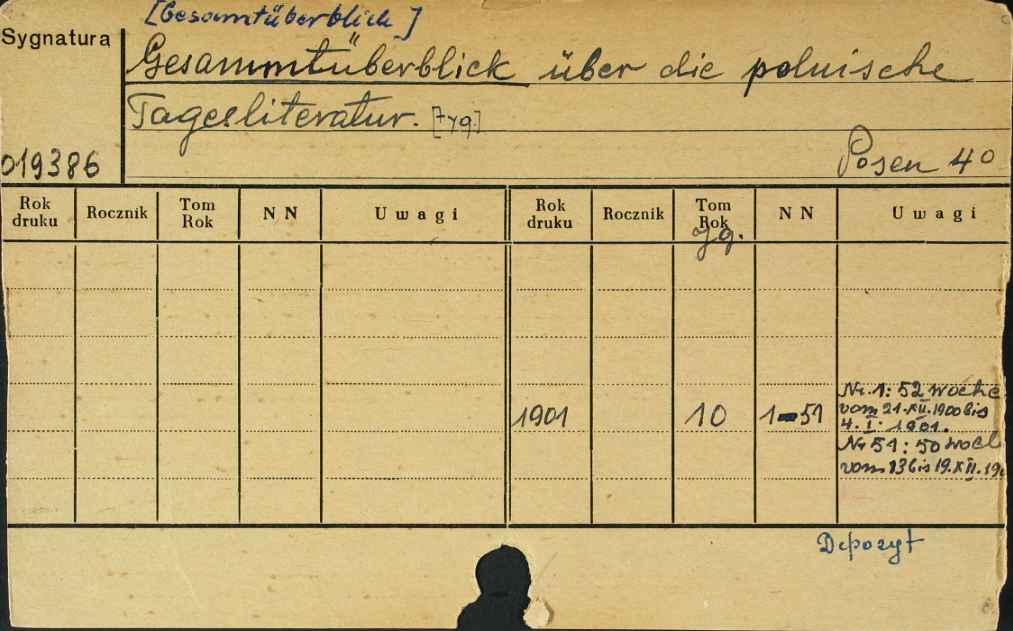 [Gesamtüberblick]
Sygnatura
Gesammtüberblick über die polnische
Tagesliteratur. [tyg.]
019386
Posen 4°
Rok druku Rocznik Tom Rok NN Uwagi Rok druku Rocznik Tom Rok NN Uwagi
Jg.
1901 10 1-51
Nr. 1: 52 woche
vom 21.XII.1900 bis
4. I. 1901.
Nr 51: 50 woch
vom 13 bis 19.XII.19
Depozyt